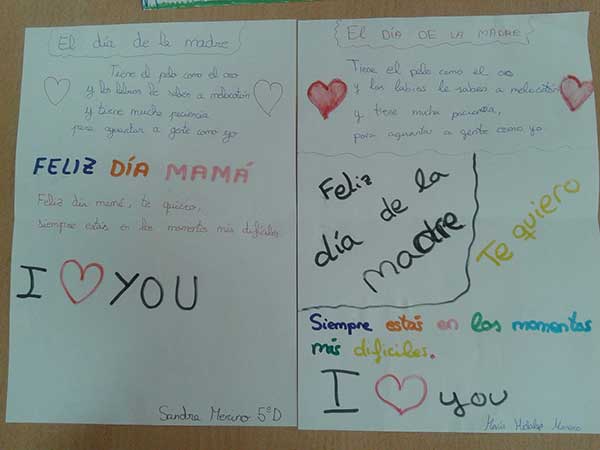 El día de la madre
Tiene el pelo como el oro
y los labios le saben a melocotón
y tiene mucha paciencia
para aguantar a gente como yo
FELIZ DÍA MAMÁ
Feliz día mamá, te quiero,
siempre estás en los momentos más difíciles.
I YOU
Sandra Merino 5ºD
EL DÍA DE LA MADRE
Tiene el pelo como el oro
y los labios le saben a melocotón
y tiene mucha paciencia,
para aguantar a gente como yo
Feliz
día de la
madre
Te quiero
Siempre estás en los momentos
más difíciles.
I you
María Hidalgo Moreno